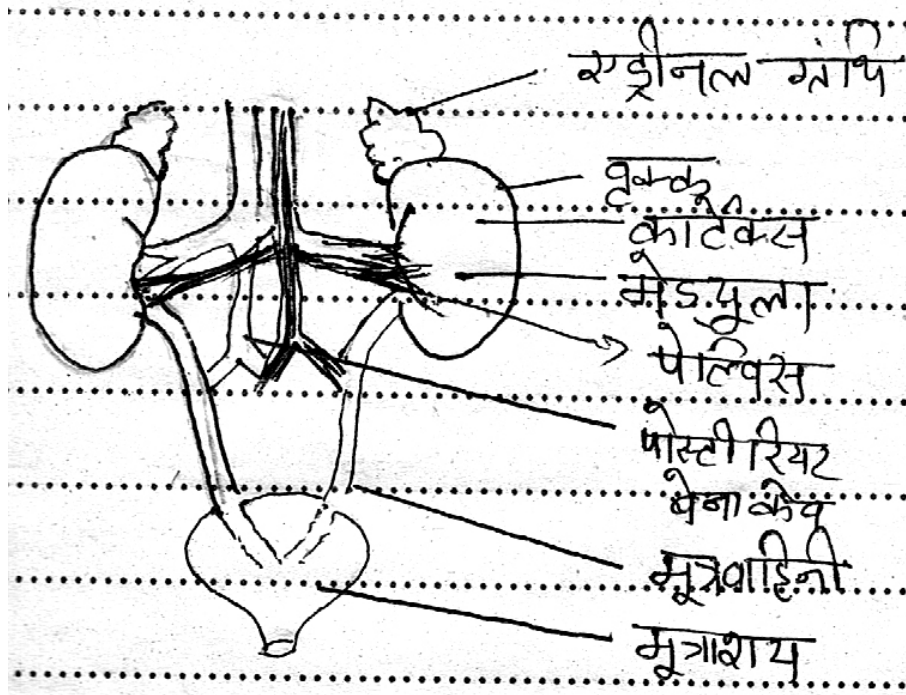 एड्रीनल ग्रंथि
वृक्क
कार्टेक्स
मेड्यूला
पेल्विस
पोस्टीरियर
बेनाकेव
मूत्रवाहिनी
मूत्राशय